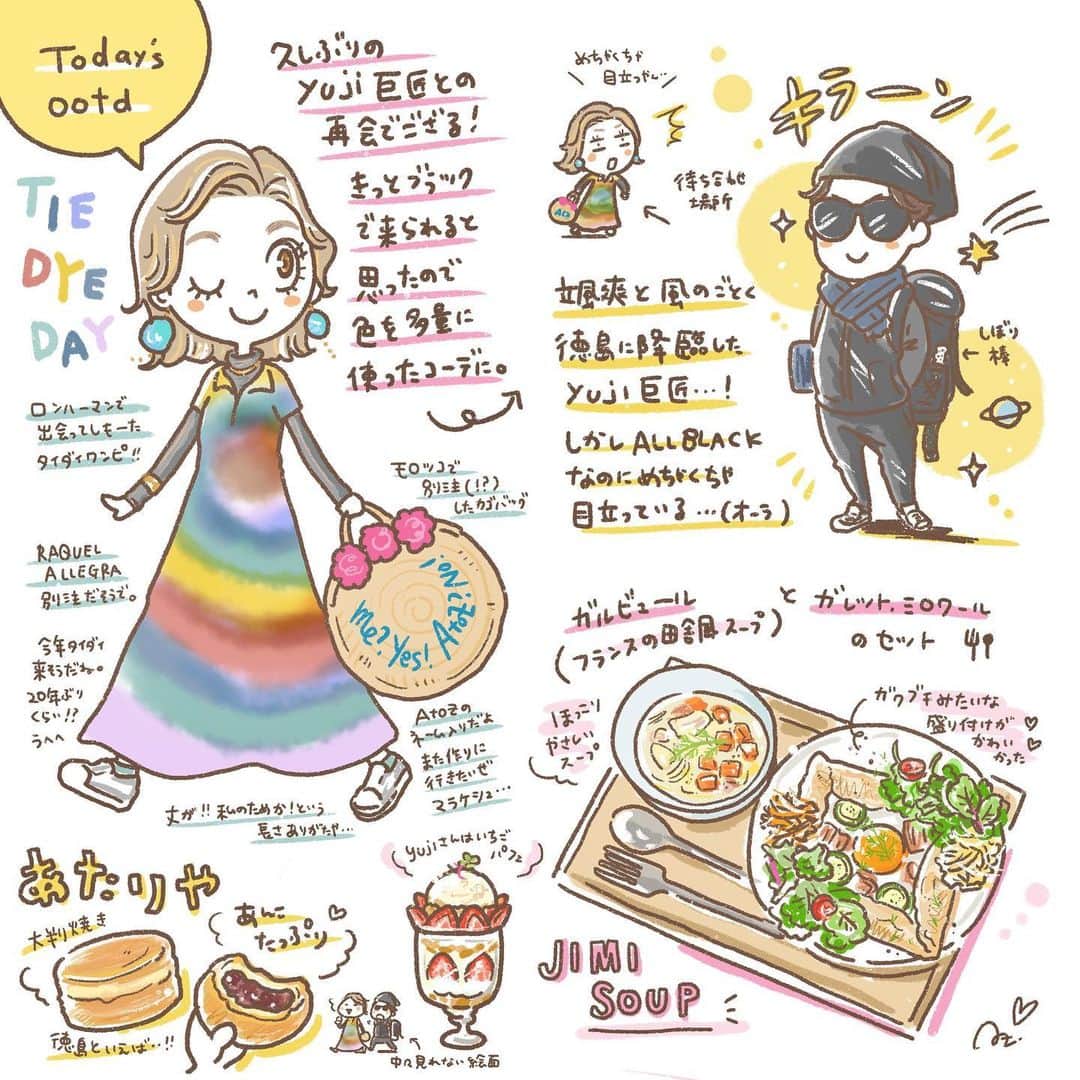 Today's
ootd
TIE
DYE
DAY
久しぶりの
yuji 巨匠との
再会でござる!
きっとブラック
で来られると
思ったので
色を多量に
使ったコーデに。
ロンハーマンで
出会ってしもーた
タイダイワンピ!!
RAQUEL
ALLEGRA
別注だそうで。
今年タイダイ
来そうだね。
20年ぶり
くらい!?
うへへ
モロッコで
別注(!?)
したカゴバッグ
me? Yes! AtoZ! No!
AtoZの
ネーム入りだよ
また作りに
行きたいぜ
マラケシュ…
丈が!! 私のためか!という
長さありがたや…
めちゃくちゃ
目立つやん…
待ち合わせ
場所
キラーン
颯爽と風のごとく
徳島に降臨した
yuji 巨匠…!
しかし ALL BLACK
なのにめちゃくちゃ
目立っている…(オーラ)
しぼり
棒
ガルビュール
(フランスの田舎風スープ)
と ガレット,ミロワール
のセット
ほっこり
やさしい
スープ
ガクブチみたいな
盛り付けが
かわい
かった
JIMI
SOUP
あたりや
大判焼き
あんこ
たっぷり
徳島といえば…!!
yujiさんはいちご
パフェ
中々見れない絵面